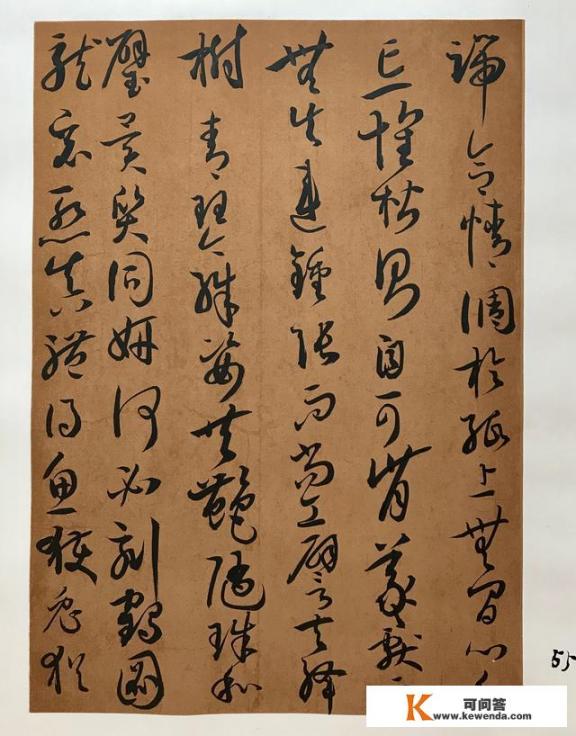 端令情調於紙上無間心手
忘懷楷則自可背羲獻而
無失違鍾張而尚工譬夫絳
樹青琴殊姿共艷隋珠和
璧異質同妍何必刻鶴圖
龍竟慚真體得魚獲兔猶
55
K 可问答
www.kewenda.com